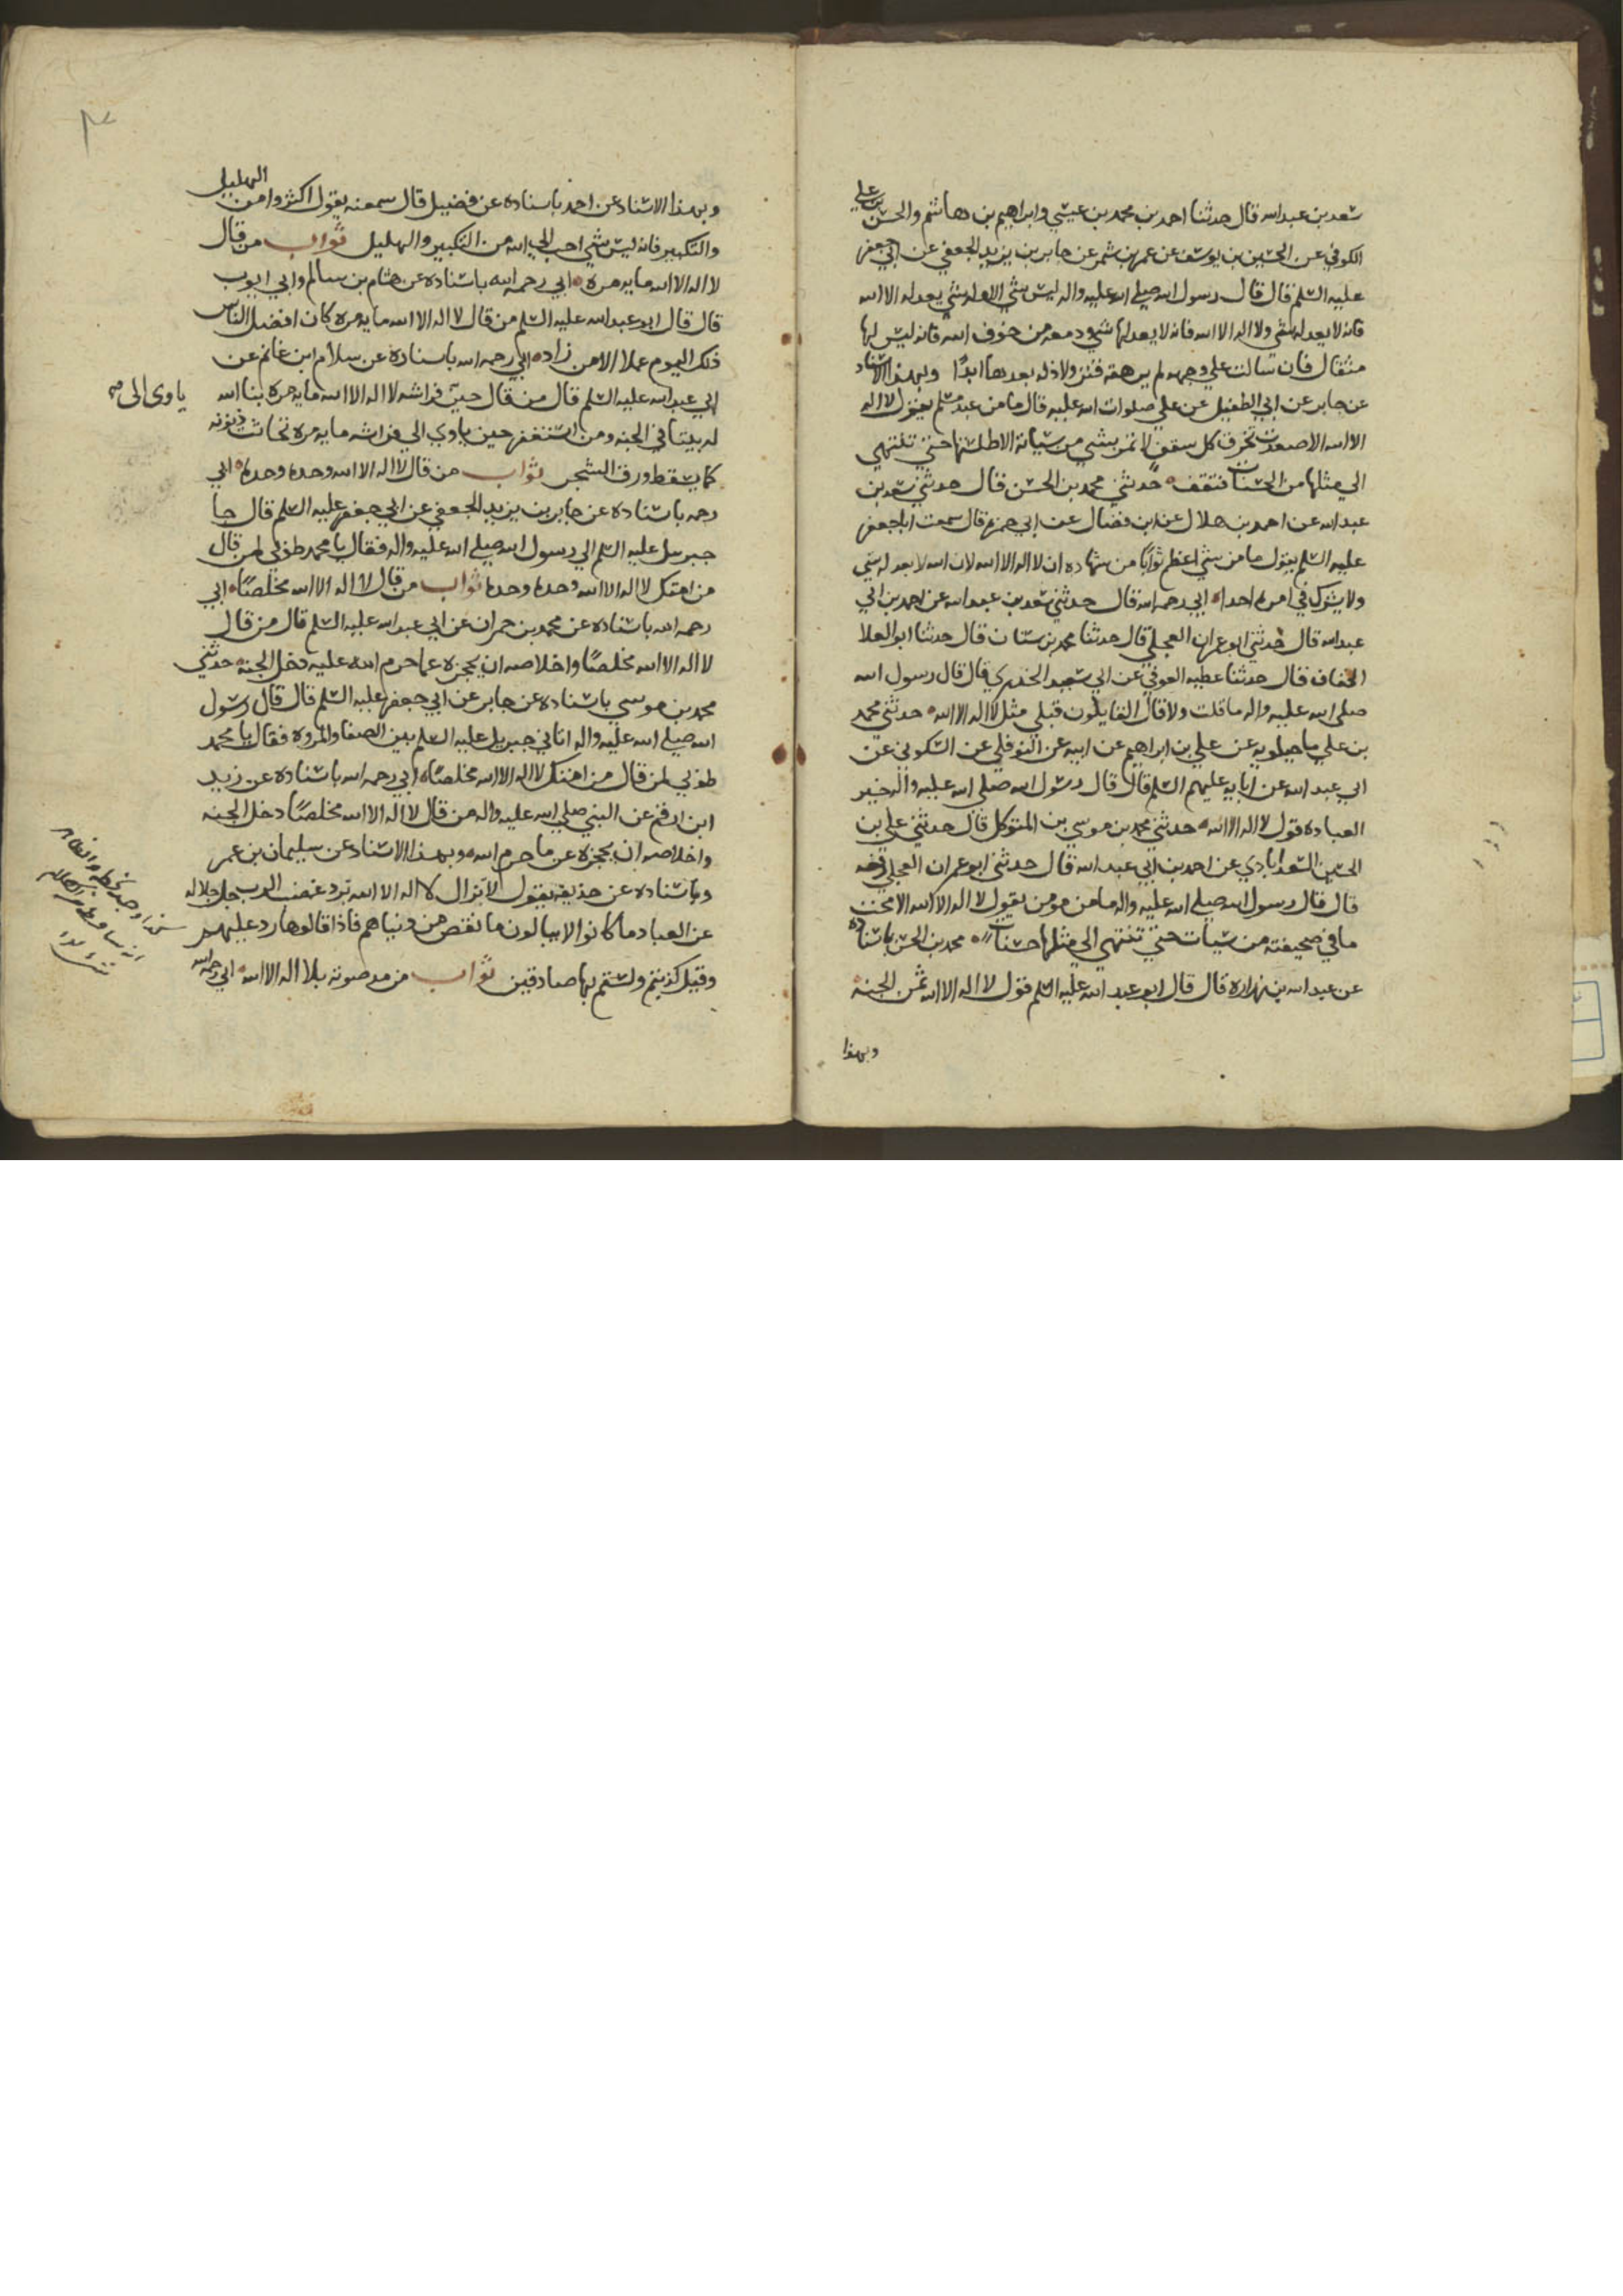 سعد بن عبد الله قال حدثنا احمد بن محمد بن عيسي وابراهيم بن هاشم والحسن بن علي
الكوفي عن الحسين بن يوسف عن عمرو بن شمر عن جابر بن يزيد الجعفي عن ابي جعفر
عليه السلم قال قال رسول الله صلي الله عليه واله ليس شي الا وله شي يعدله الا الله
فانه لا يعدله شي ولا اله الا الله فانه لا يعدلها شي ودمعه من خوف الله فانه ليس لها
مثقال فان سالت علي وجهه لم يرهقه قتر ولا ذله بعدها ابدًا وبهذا الاسناد
عن جابر عن ابي الطفيل عن علي صلوات الله عليه قال ما من عبد مسلم يقول لا اله
الا الله الا صعدت تخرق كل سقف لا تمر بشي من سياته الا طلستها حتي تنتهي
الي مثلها من الحسنات فتقف حدثني محمد بن الحسن قال حدثني سعد بن
عبد الله عن احمد بن هلال عن ابن فضال عن ابي حمزه قال سمعت ابا جعفر
عليه السلم يقول ما من شي اعظم ثوابًا من شهاده ان لا اله الا الله لان الله لا يعدله شي
ولا يشركه في امره احدا ابي رحمه الله قال حدثني سعد بن عبد الله عن احمد بن ابي
عبد الله قال حدثني ابو عمران العجلي قال حدثنا محمد بن سنان قال حدثنا ابو العلا
الخفاف قال حدثنا عطيه العوفي عن ابي سعيد الخدري قال قال رسول الله
صلي الله عليه واله ما قلت ولا قال القايلون قبلي مثل لا اله الا الله حدثني محمد
بن علي ماجيلويه عن علي بن ابراهيم عن ابيه عن النوفلي عن السكوني عن
ابي عبد الله عن ابايه عليهم السلم قال قال رسول الله صلي الله عليه واله خير
العباده قول لا اله الا الله حدثني محمد بن موسي بن المتوكل قال حدثني علي بن
الحسين السعدابادي عن احمد بن ابي عبد الله قال حدثني ابو عمران العجلي رفعه
قال قال رسول الله صلي الله عليه واله ما من مومن يقول لا اله الا الله الا محت
ما في صحيفته من سيات حتي تنتهي الي مثلها حسنات محمد بن الحسن باسناده
عن عبد الله بن زراره قال قال ابو عبد الله عليه السلم قول لا اله الا الله ثمن الجنه
وبهذا
وبهذا الاسناد عن احمد باسناده عن فضيل قال سمعته يقول اكثروا من التهليل
والتكبير فانه ليس شي احب الي الله من التكبير والتهليل ثواب من قال
لا اله الا الله مايه مره ابي رحمه الله باسناده عن هشام بن سالم وابي ايوب
قال قال ابو عبد الله عليه السلم من قال لا اله الا الله مايه مره كان افضل الناس
ذلك اليوم عملا الا من زاد ابي رحمه الله باسناده عن سلام ابن غانم عن
ابي عبد الله عليه السلم قال من قال حين فراشه لا اله الا الله مايه مره بنا الله
ياوى الى
له بيتا في الجنه ومن استغفر حين ياوي الي فراشه مايه مره تحاتت ذنوبه
كما يسقط ورق الشجر ثواب من قال لا اله الا الله وحده وحده ابي
رحمه باسناده عن جابر بن يزيد الجعفي عن ابي جعفر عليه السلم قال جا
جبرييل عليه السلم الي رسول الله صلي الله عليه واله فقال يا محمد طوبي لمن قال
من امتك لا اله الا الله وحده وحده ثواب من قال لا اله الا الله مخلصًا ابي
رحمه الله باسناده عن محمد بن حمران عن ابي عبد الله عليه السلم قال من قال
لا اله الا الله مخلصًا واخلاصه ان يحجزه عما حرم الله عليه دخل الجنه حدثني
محمد بن موسي باسناده عن جابر عن ابي جعفر عليه السلم قال قال رسول
الله صلي الله عليه واله اتاني جبريل عليه السلم بين الصفا والمروه فقال يا محمد
طوبي لمن قال من امتك لا اله الا الله مخلصًا ابي رحمه الله باسناده عن زيد
ابن ارقم عن النبي صلي الله عليه واله من قال لا اله الا الله مخلصًا دخل الجنه
واخلاصه ان يحجزه عن ما حرم الله وبهذا الاسناد عن سليمان بن عمر
وباسناده عن حذيفه يقول لا تزال لا اله الا الله ترد غضب الرب جل جلاله
عن العباد ما كانوا لا يبالون ما نقص من دنياهم فاذا قالوها رد عليهم
وقيل كذبتم ولستم بها صادقين ثواب من مد صوته بلا اله الا الله ابي رحمه الله